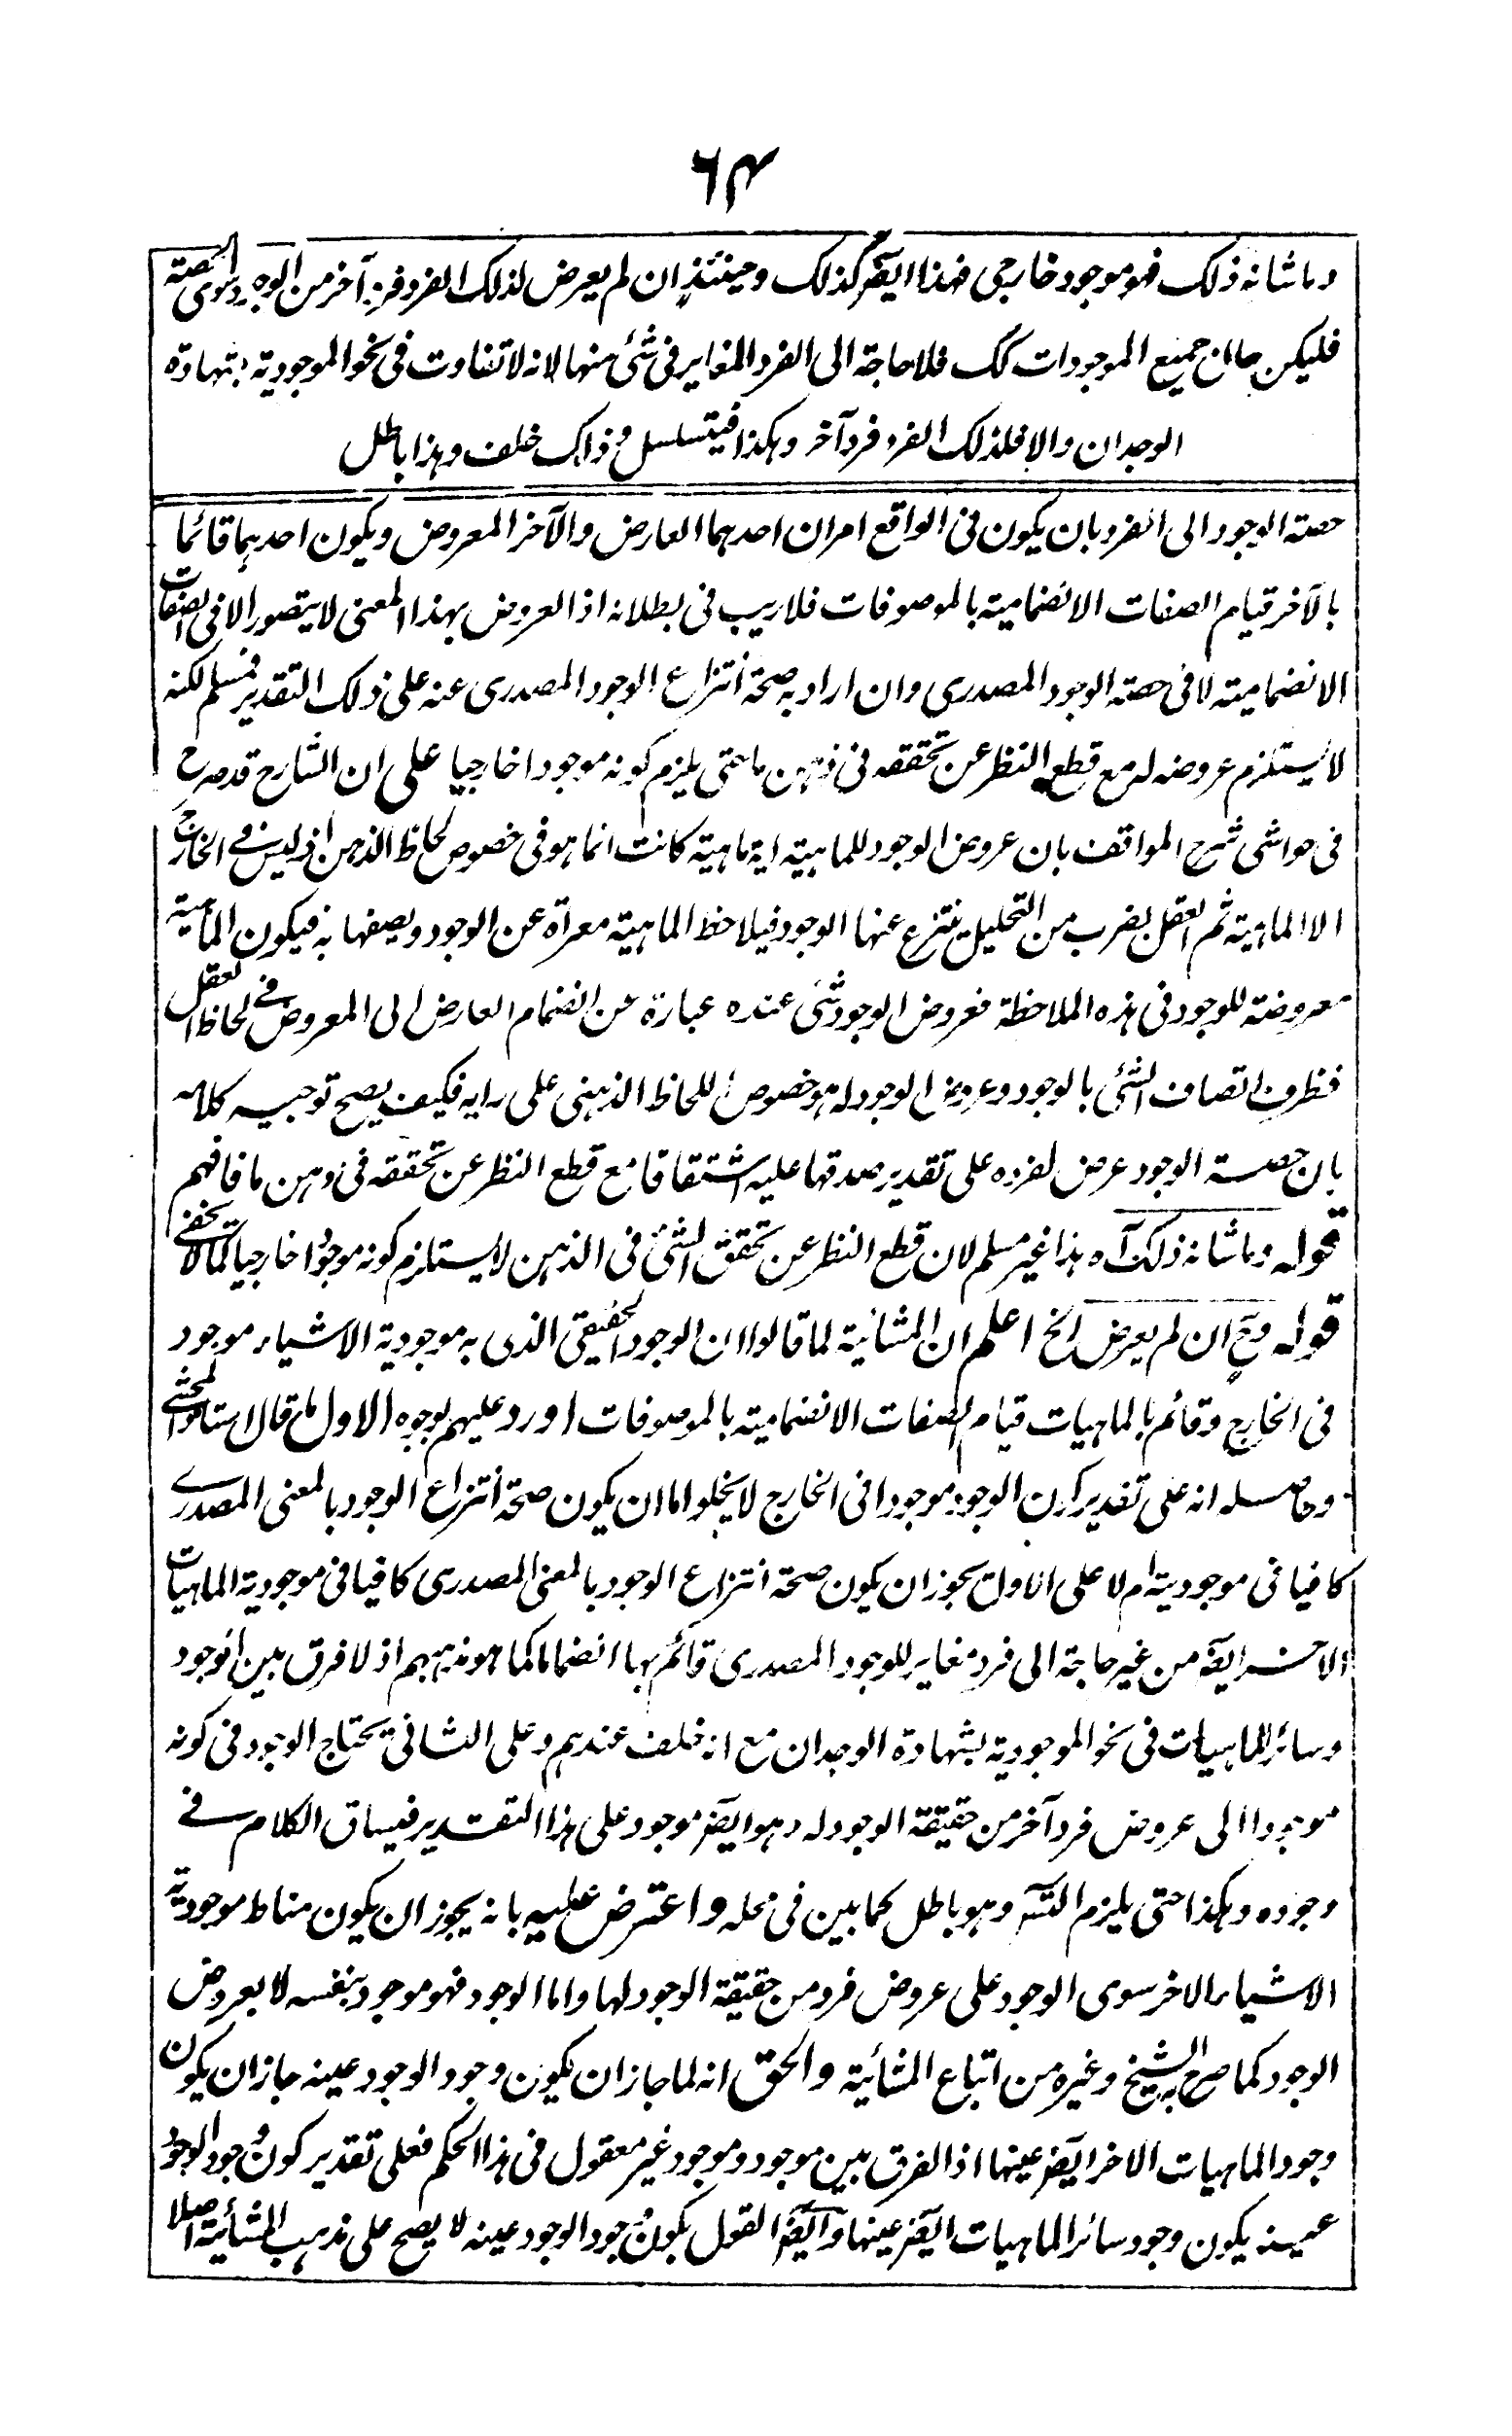 ٦٤
وما شانه ذلك فهو موجود خارجى فهذا ايضً كذلك وحينئذٍ ان لم يعرض لذلك الفرد فردٌ آخر من الوجود سوى الحصة
فليكن حال جميع الموجودات كك فلا حاجة الى الفرد المغاير فى شئ منها لانه لا تفاوت فى نحو الموجودية بشهادة
الوجدان والا فلذلك الفرد فرد آخر وهكذا فيتسلسل وذلك خلف وهذا باطل
حصة الوجود الى الفرد بان يكون فى الواقع امران احدهما العارض والآخر المعروض ويكون احدهما قائما
بالآخر قيام الصفات الانضمامية بالموصوفات فلا ريب فى بطلانه اذ العروض بهذا المعنى لا يتصور الا فى الصفات
الانضمامية لا فى حصة الوجود المصدرى وان اراد به صحة انتزاع الوجود المصدرى عنه على ذلك التقدير فمسلم لكنه
لا يستلزم عروضه له مع قطع النظر عن تحققه فى ذهن ما حتى يلزم كونه موجودا خارجيا على ان الشارح قد صرح
فى حواشى شرح المواقف بان عروض الوجود للماهية اية ماهية كانت انما هو فى خصوص لحاظ الذهن اذ ليس فى الخارج
الا الماهية ثم العقل بضرب من التحليل ينتزع عنها الوجود فيلاحظ الماهية معراة عن الوجود ويصفها به فيكون الماهية
معروضة للوجود فى هذه الملاحظة فعروض الوجود لشئ عنده عبارة عن انضمام العارض الى المعروض فى لحاظ العقل
فظرف اتصاف الشئ بالوجود وعروض الوجود له هو خصوص اللحاظ الذهنى على رايه فكيف يصح توجيه كلامه
بان حصة الوجود عرض لفرده على تقدير صدقها عليه اشتقاقا مع قطع النظر عن تحققه فى ذهن ما فافهم
قوله وما شانه ذلك آه هذا غير مسلم لان قطع النظر عن تحقق الشئ فى الذهن لا يستلزم كونه موجودا خارجيا كما لا يخفى
قوله وح ان لم يعرض الخ اعلم ان المشائية لما قالوا ان الوجود الحقيقى الذى به موجودية الاشياء موجود
فى الخارج وقائم بالماهيات قيام الصفات الانضمامية بالموصوفات اورد عليهم بوجوه الاول ما قال استاذ المحشى
وحاصله انه على تقدير كون الوجود موجودا فى الخارج لا يخلو اما ان يكون صحة انتزاع الوجود بالمعنى المصدرى
كافيا فى موجودية ام لا على الاول يجوز ان يكون صحة انتزاع الوجود بالمعنى المصدرى كافيا فى موجودية الماهيات
الاخر ايضً من غير حاجة الى فرد مغاير للوجود المصدرى قائم بها انضماما كما هو مذهبهم اذ لا فرق بين الوجود
وسائر الماهيات فى نحو الموجودية بشهادة الوجدان مع انه خلف عندهم وعلى الثانى يحتاج الوجود فى كونه
موجودا الى عروض فرد آخر من حقيقة الوجود له وهو ايضً موجود على هذا التقدير فيساق الكلام فى
وجوده وهكذا حتى يلزم التسـ وهو باطل كما بين فى محله واعترض عليه بانه يجوز ان يكون مناط موجودية
الاشياء الاخر سوى الوجود على عروض فرد من حقيقة الوجود لها واما الوجود فهو موجود بنفسه لا بعروض
الوجود كما صرح به الشيخ وغيره من اتباع المشائية والحق انه لما جاز ان يكون وجود الوجود عينه جاز ان يكون
وجود الماهيات الاخر ايضً عينها اذ الفرق بين موجود وموجود غير معقول فى هذا الحكم فعلى تقدير كون وجود الوجود
عينه يكون وجود سائر الماهيات ايضً عينها وايضً القول بكون وجود الوجود عينه لا يصح على مذهب المشائية اصلا